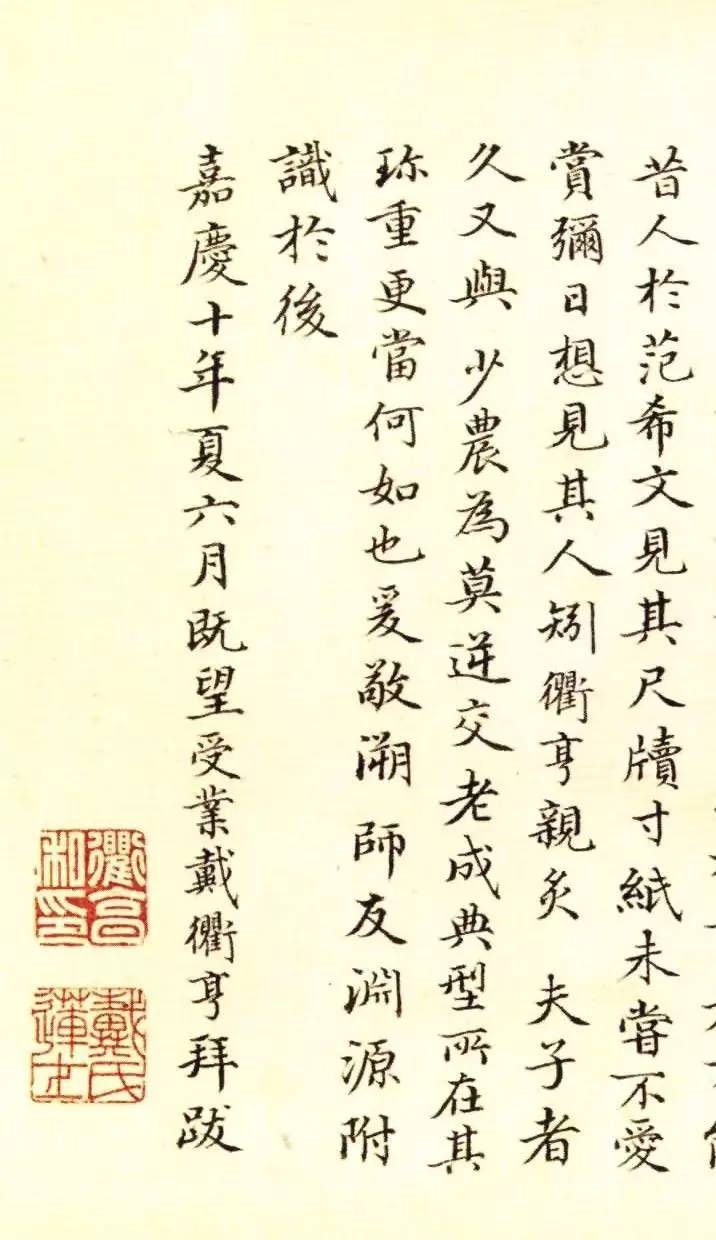 昔人於范希文見其尺牘寸紙未嘗不愛
賞彌日想見其人矧衢亨親炙 夫子者
久又與 少農為莫逆交老成典型所在其
珎重更當何如也爰敬溯師友淵源附
識於後
嘉慶十年夏六月既望受業戴衢亨拜跋
衢亨
私印
戴氏
蓮士